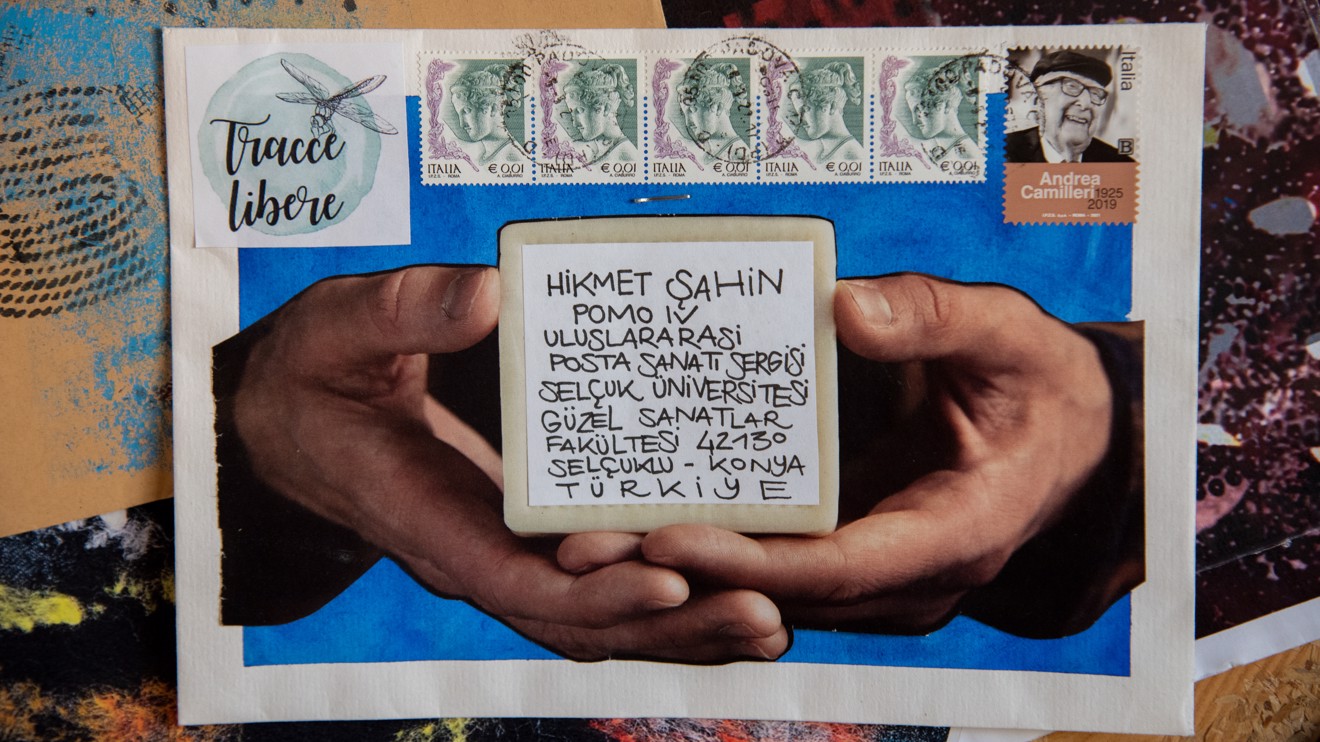 Tracce
libere
ITALIA €0,01
I.P.Z.S. - ROMA
ITALIA €0,01
I.P.Z.S. - ROMA
ITALIA €0,01
I.P.Z.S. - ROMA
ITALIA €0,01
I.P.Z.S. - ROMA
ITALIA €0,01
I.P.Z.S. - ROMA
Italia
B
Andrea
Camilleri 1925
2019
HİKMET ŞAHİN
POMO IV
ULUSLARARASİ
POSTA SANATI SERGİSİ
SELÇUK ÜNİVERSİTESİ
GÜZEL SANATLAR
FAKÜLTESİ 42130
SELÇUKLU - KONYA
TÜRKİYE